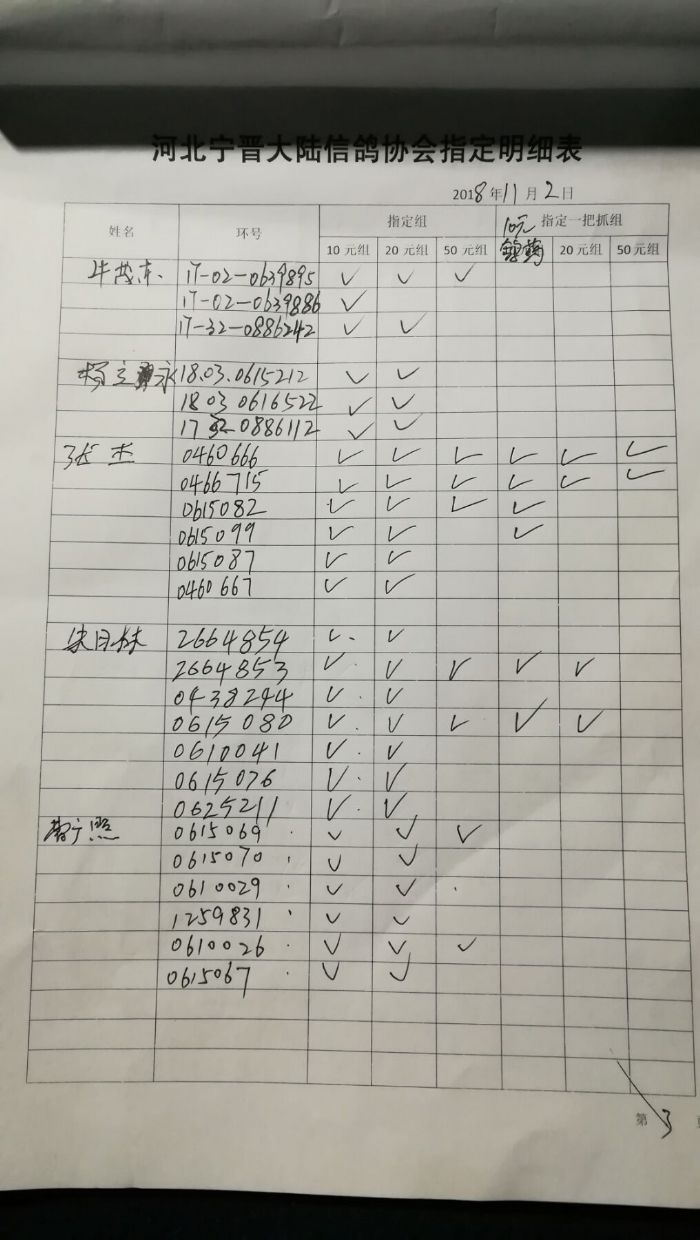 河北宁晋大陆信鸽协会指定明细表
2018年11月2日
姓名 环号 指定组 10元 指定一把抓组
10 元组 20 元组 50 元组 20 元组 50 元组
牛茂东 17-02-0639895 ✓ ✓ ✓
17-02-0639886 ✓
17-32-0886242 ✓ ✓
杨立永 18.03.0615212 ✓ ✓
18 03 0616522 ✓ ✓
17 32 0886112 ✓ ✓
张杰 0460666 ✓ ✓ ✓ ✓ ✓ ✓
0466715 ✓ ✓ ✓ ✓ ✓ ✓
0615082 ✓ ✓ ✓ ✓
0615099 ✓ ✓ ✓
0615087 ✓ ✓
0460667 ✓ ✓
2664854 ✓ ✓
2664853 ✓ ✓ ✓ ✓ ✓
0438244 ✓ ✓
0615080 ✓ ✓ ✓ ✓ ✓
0610041 ✓ ✓
0615076 ✓ ✓
0625211 ✓ ✓
0615069 ✓ ✓ ✓
0615070 ✓ ✓
0610029 ✓ ✓
1259831 ✓ ✓
0610026 ✓ ✓ ✓
0615067 ✓ ✓
第 3